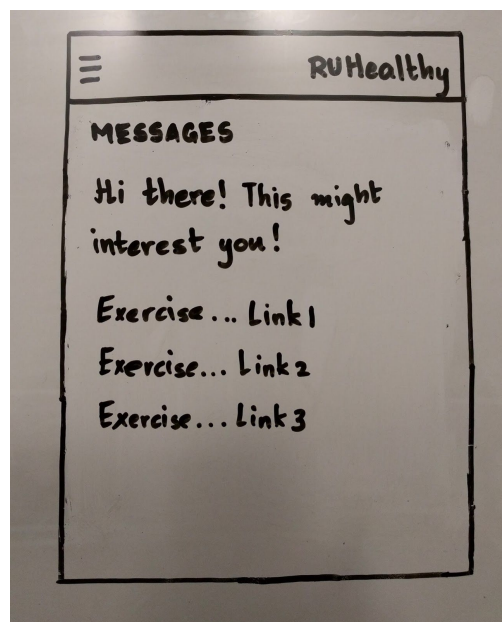 RUHealthy
MESSAGES
Hi there! This might
interest you!
Exercise... Link 1
Exercise... Link 2
Exercise... Link 3